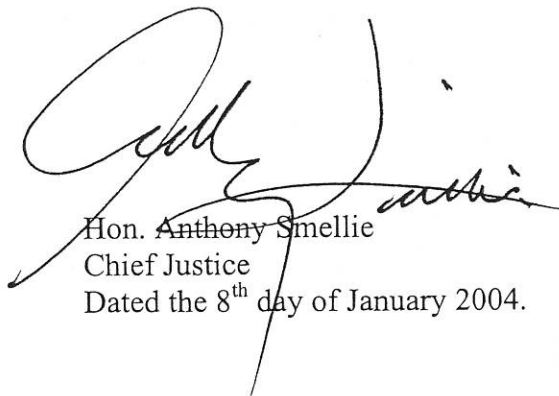 Hon. Anthony Smellie
Chief Justice
Dated the 8th day of January 2004.